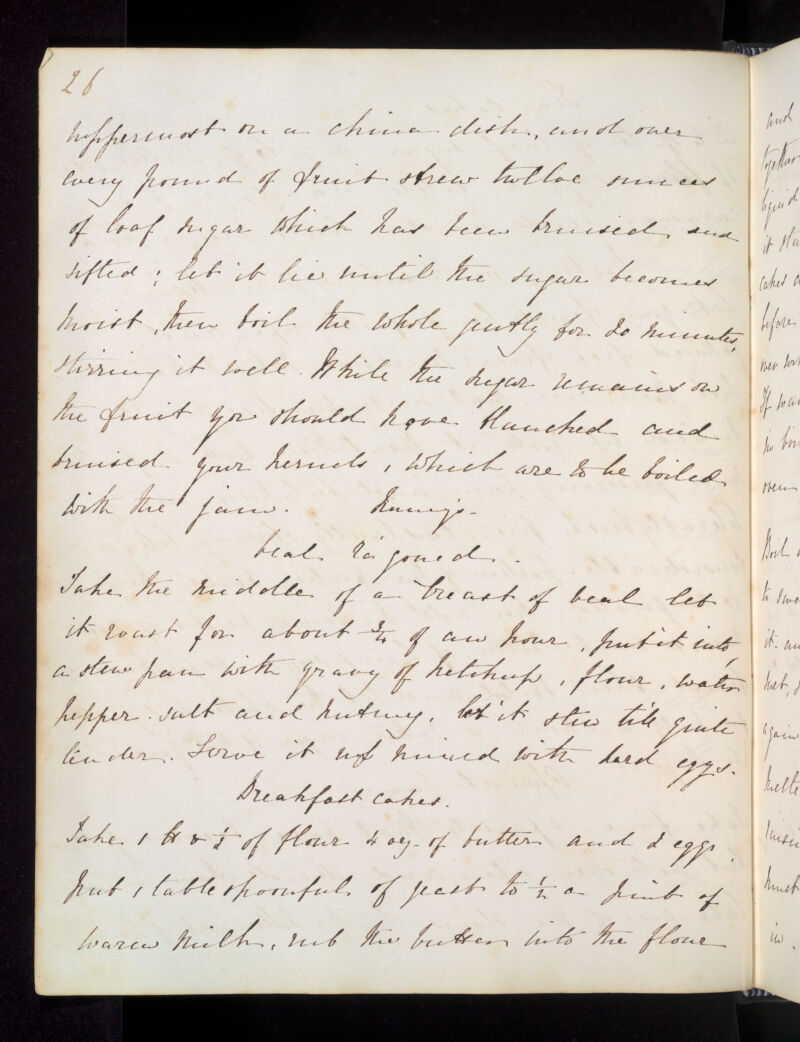 26
uppermost on a china dish, and over
every pound of fruit strew twelve ounces
of loaf sugar which has been bruised and
sifted; let it lie until the sugar becomes
moist, then boil the whole gently for 20 minutes,
stirring it well. While the sugar remains on
the fruit you should have blanched and
bruised your kernels, which are to be boiled
with the jam.
Veal ragoued.
Take the middle of a breast of veal let
it roast for about 3/4 of an hour, put it into
a stew pan with gravy of Ketchup, flour, water
pepper. salt and nutmeg, let it stew till quite
tender. Serve it up mixed with hard eggs.
Breakfast cakes.
Take 1 lb & 1/2 of flour 4 oz. of butter and 2 eggs,
put 1 tablespoonful of yeast to 1/2 a pint of
warm milk, rub the butter into the flour
and
together
liquid
cakes
before
If
oven
Boil
it.
again
must
in.